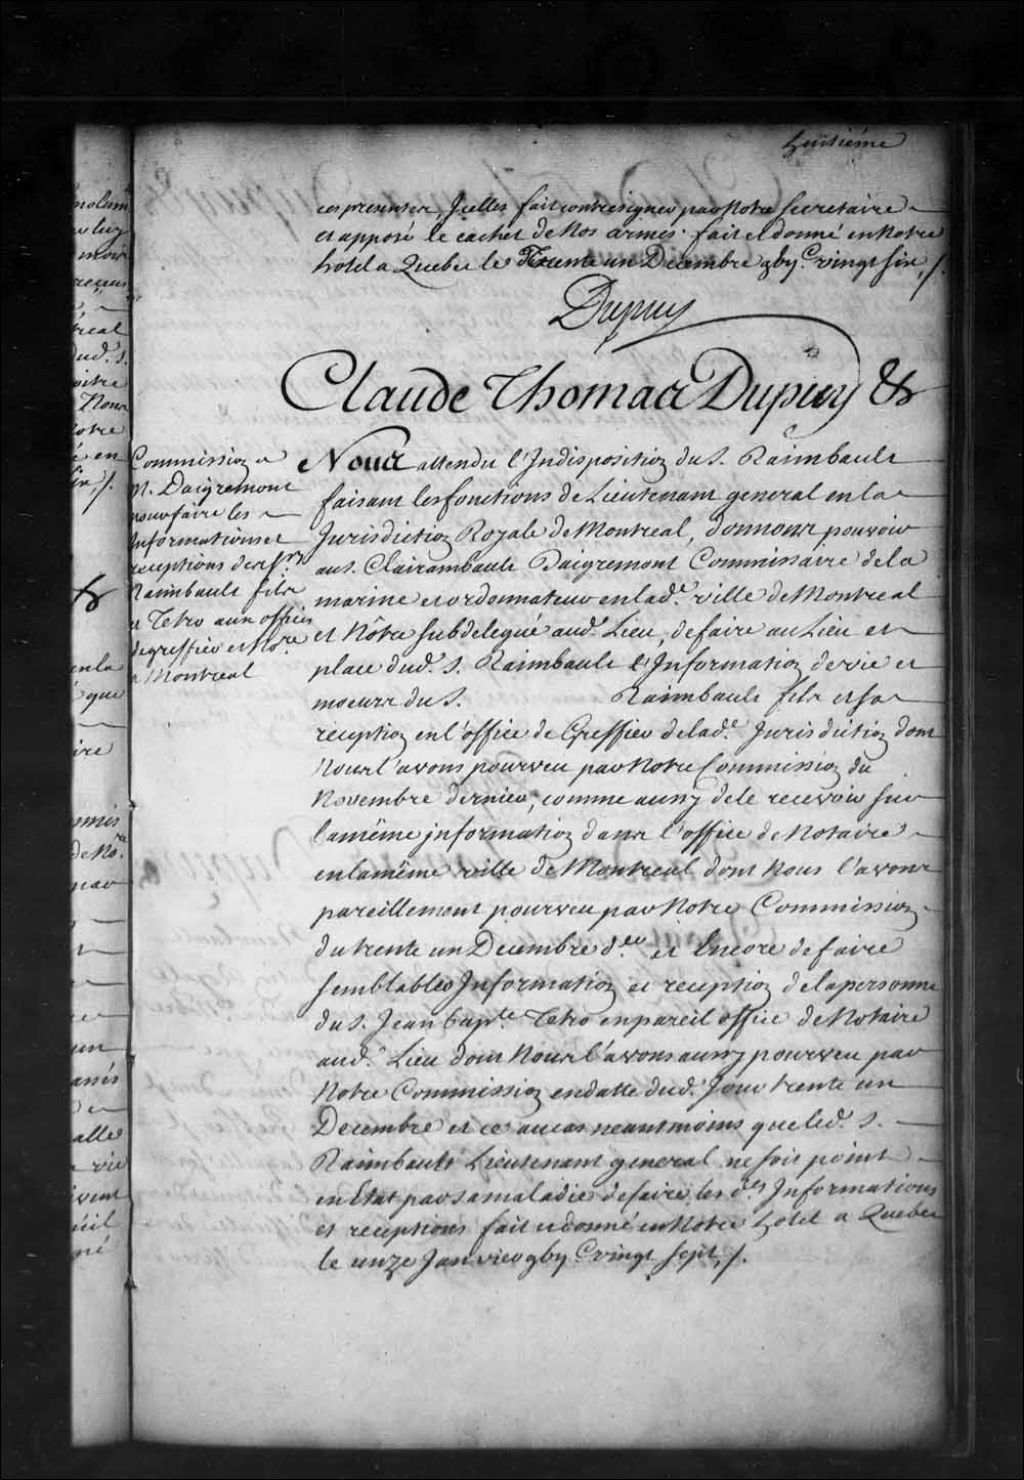 huitiéme
ces presentes, Jcelles fait contresigner par Notre secretaire
et apposé le cachet de Nos armes. fait et donné en Notre
hotel a Quebec le Trente un Decembre gby.c vingt six ./.
Dupuy
Claude Thomas Dupuy &
Commission a
M. Daigremont
pour faire les
Informations et
receptions des Srs
Raimbault fils
et Tetro aux offices
de greffier et Nore
a Montreal
Nous attendu l'Indisposition du S. Raimbault
faisant les fonctions de Lieutenant general en la
Jurisdiction Royale de Montreal, donnons pouvoir
au S. Clairambault Daigremont Commissaire de la
marine et ordonnateur en lad.e ville de Montreal
et Nôtre subdelegué aud. Lieu, de faire au Lieu et
place dud. S. Raimbault l'Information de vie et
moeurs du S. Raimbault fils et sa
reception en l'office de Greffier de lad.e Jurisdiction dont
Nous l'avons pourveu par Notre Commission du
Novembre dernier, comme aussy de le recevoir sur
la même jnformation dans l'office de Notaire
en la même ville de Montreal dont Nous l'avons
pareillement pourveu par Notre Commission
du trente un Decembre d.er et Encore de faire
semblables Information et reception de la personne
du S. Jean bapt.te Tetro en pareil office de Notaire
aud. Lieu dont Nous l'avons aussy pourveu par
Notre Commission en datte dud. Jour trente un
Decembre et ce au cas neantmoins que led. S.
Raimbault Lieutenant general ne soit point
en Etat par sa maladie de faire les d.tes Informations
et receptions fait et donné en Notre hotel a Quebec
le unze Janvier gby.c vingt sept, ./.